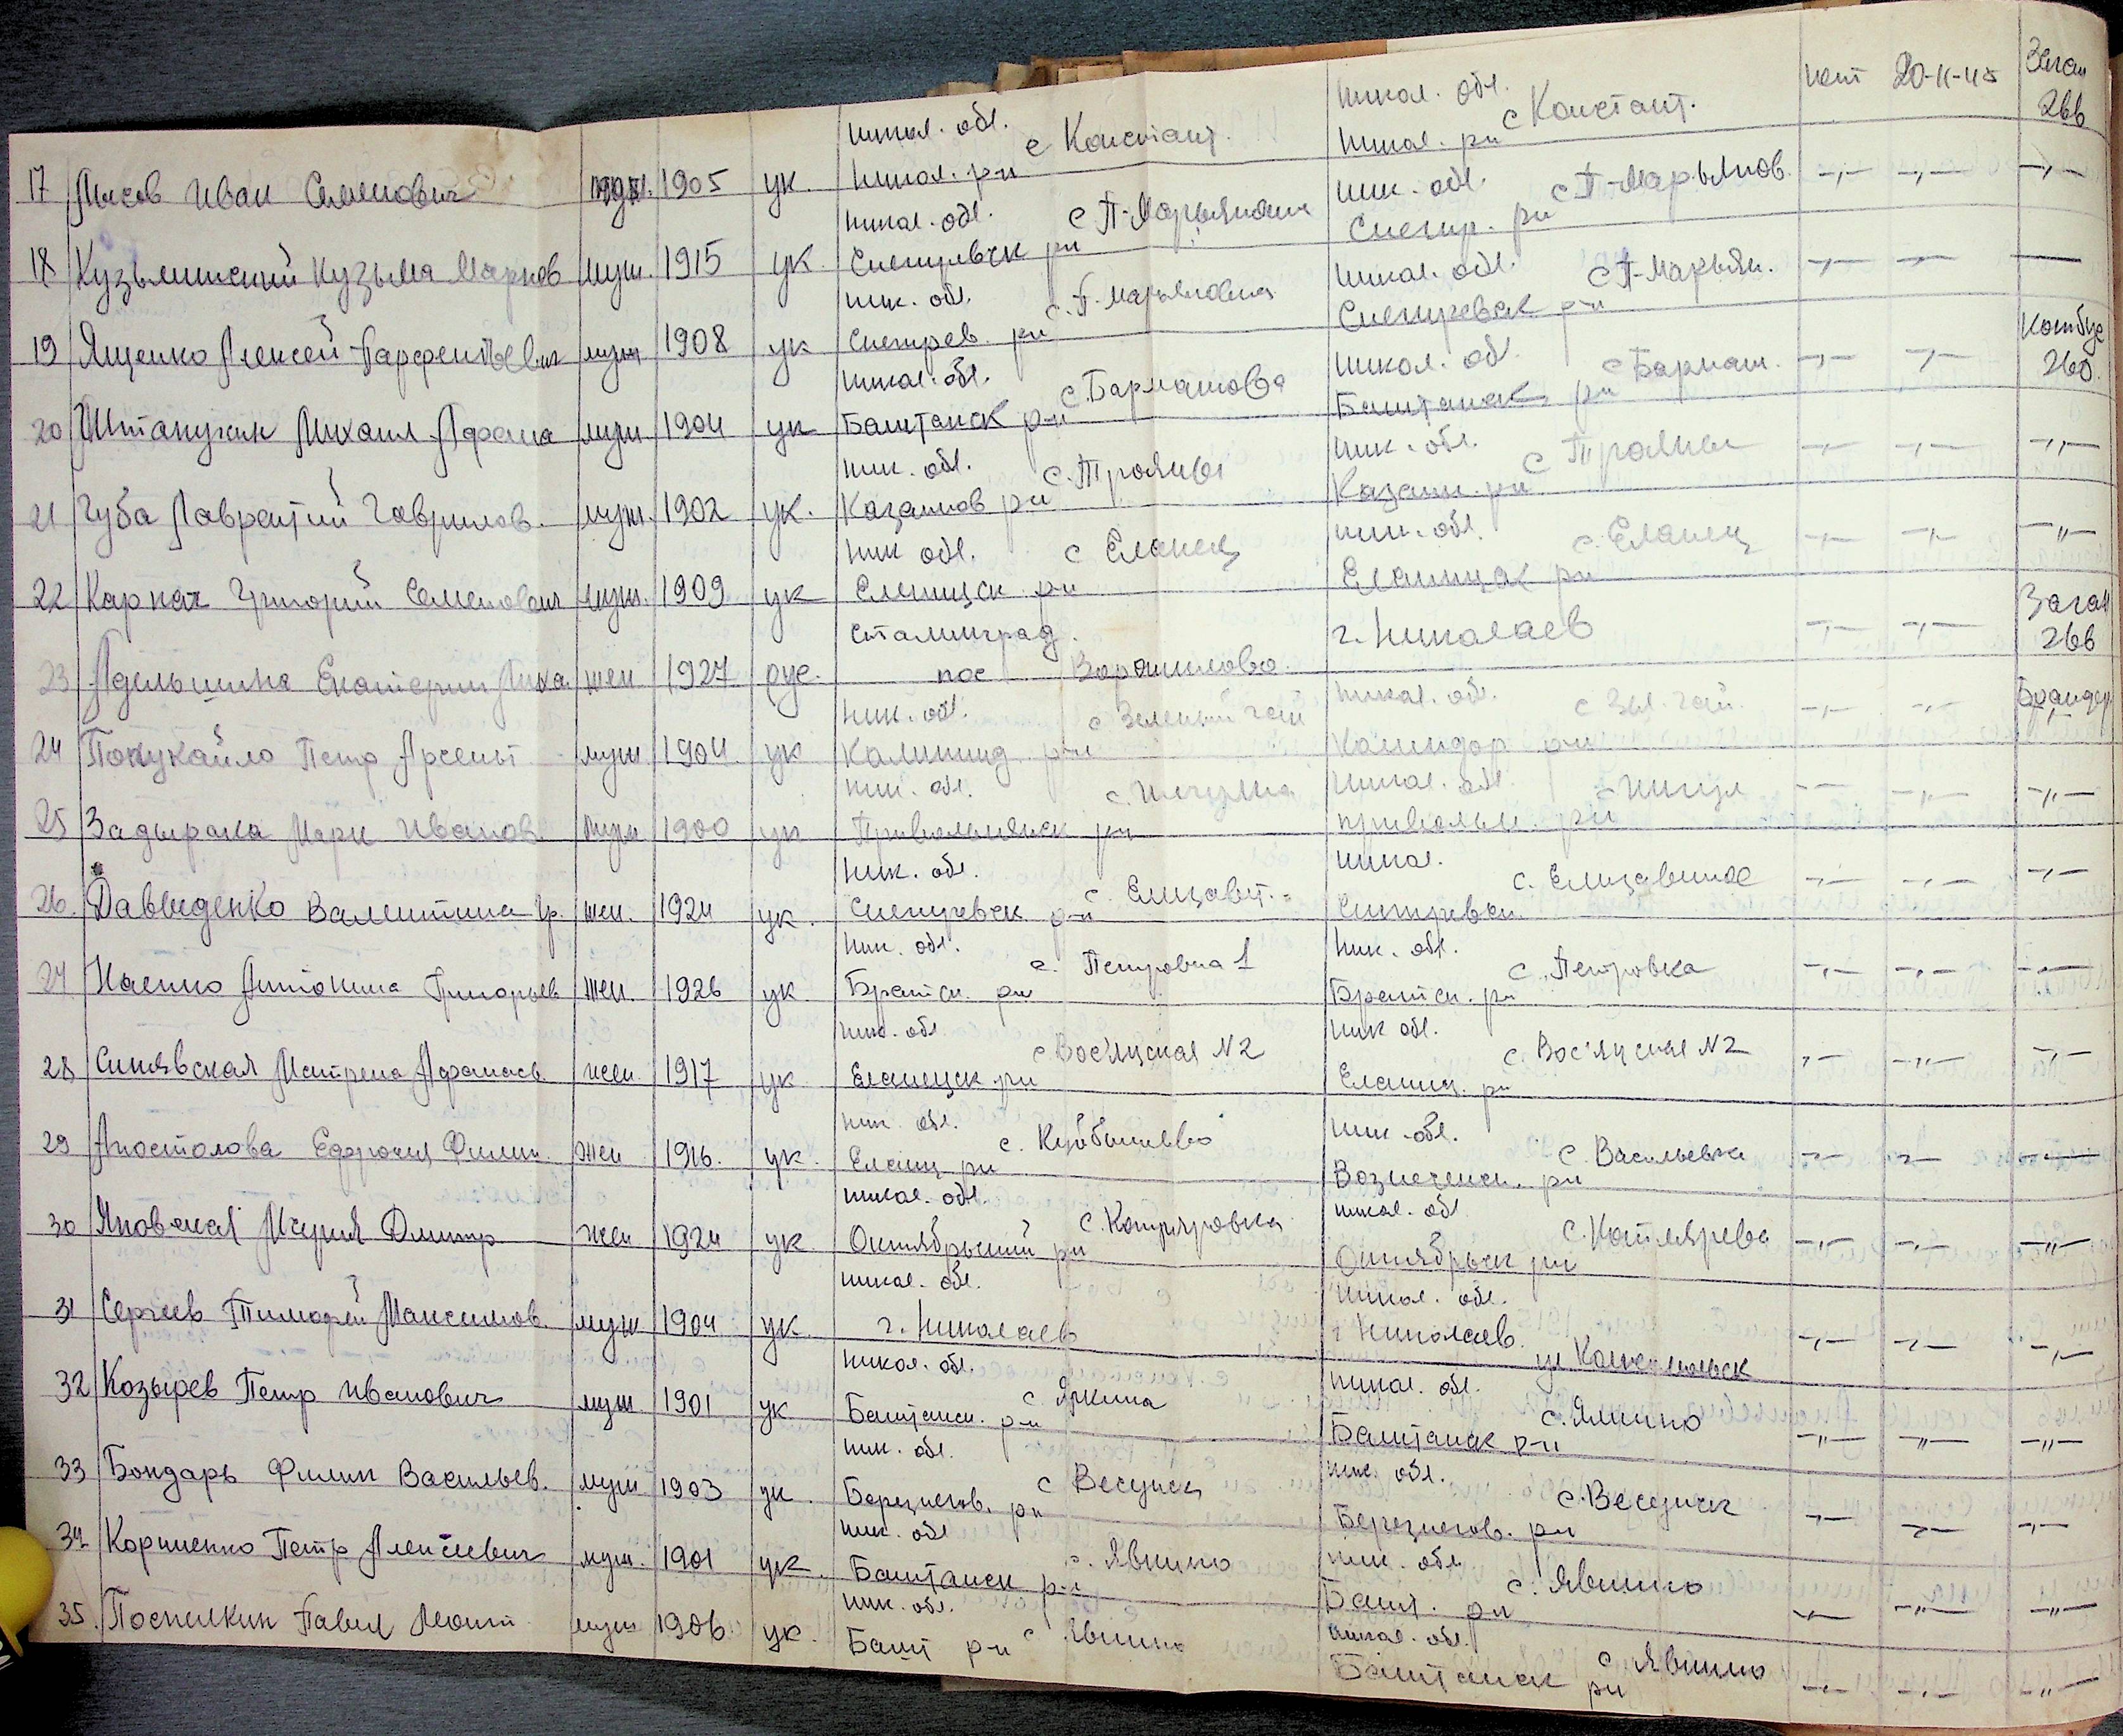 Никол. обл. Никол. обл. Заган
17 Лисов Иван Семенович муж. 1905 ук. Никол. р-н с Констант. Никол. р-н с Констант. нет 20-II-45 26б
Никол. обл. Ник. обл.
18 Кузьминский Кузьма Марков муж. 1915 ук. Снегиревск р-н с П-Марьяновка Снегир. р-н с П-Марьянов. -"- -"- -"-
Ник. обл. Никол. обл.
19 Ященко Алексей Парфентьевич муж 1908 ук Снегирев. р-н с. П. Марьяновка Снегиревск р-н с П-Марьян. -"- -"- —
Никол. обл. Никол. обл Котбус
20 Штанухин Михаил Афана муж. 1904 ук Баштанск р-н с. Бармашова Баштанск р-н с Бармаш. -"- -"- 260.
Ник. обл. Ник. обл.
21 Губа Лаврентий Гаврилов. муж. 1902 ук. Казанков р-н с. Трояны Казанк. р-н с Трояны -"- -"- -"-
Ник обл. Ник. обл.
22 Карпах Григорий Семенович муж. 1909 ук Еланецк р-н с Еланец Еланецк р-н с. Еланец -"- -"- -"-
Сталинград. Заган
23 Адельшина Екатерин Миха. жен 1927 рус. пос Ворошилова. г. Николаев -"- -"- 26б
Ник. обл. Никол. обл. Бранден
24 Покукайло Петр Арсент. муж 1904 ук р-н с Зеленый гай р-н с Зел. гай. -"- -"- -"-
Ник. обл. Никол. обл
25 Задырака Марк Иванов. муж 1900 ук Привольнянск р-н с. Привольн. р-н с -"- -"- -"-
Ник. обл. Никол.
26. Давыденко Валентина Гр. жен. 1924 ук. Снегиревск р-н с Елизавет. Снегиревск. с. -"- -"- -"-
Ник. обл. Ник. обл.
27 Антонина Григорьев жен. 1926 ук. Братск. р-н с. Петровка 1 Братск. р-н с. Петровка -"- -"- -"-
Ник. обл Ник обл.
28 Синявская Матрена Афанасьев. жен. 1917 ук. Еланецк р-н с. Вос'яцкая N2 Еланец. р-н с. Вос'яцкая N2 -"- -"- -"-
Ник. обл. Ник. обл.
29 Апостолова Ефросия Филип. жен 1916. ук. Еланц р-н с. Куйбышево Вознесенск. р-н с. Васильевка -"- -"- -"-
Никол. обл. Никол. обл
30 Яновская Мария Дмитр жен 1924 ук. Октябрьский р-н с. Октябрьск р-н с. Котлярева -"- -"- -"-
Никол. обл. Никол. обл.
31 Сергеев Тимофей Максимов. муж 1904 ук. г. Николаев г Николаев. ул Комсомольск -"- -"- -"-
Никол. обл. Никол. обл.
32 Козырев Петр Иванович муж. 1901 ук Баштанск. р-н с Баштанск р-н с. -"- -"- -"-
Ник. обл. Ник. обл.
33 Бондарь Филип Васильев. муж 1903 ук. Березнегов. р-н с Березнегов. р-н с. -"- -"- -"-
Ник. обл Ник. обл.
34 Корниенко Петр Алексеевич муж. 1901 ук. Баштанск р-н с. Явкино Башт. р-н с. Явкино -"- -"- -"-
Ник. обл. Никол. обл.
35. Поспелкин Павел муж 1906 ук. Башт р-н с Явкино Баштанск р-н с Явкино -"- -"- -"-